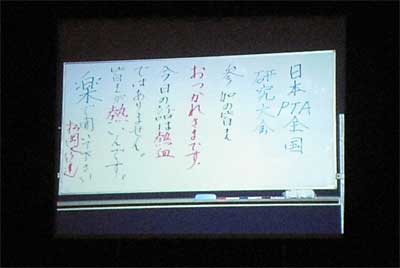 日本PTA全国
研究大会
参加の皆さん
おつかれさまです。
今日の話は熱血
ではありません。
皆さんが熱いんです。
楽に聞いて下さい